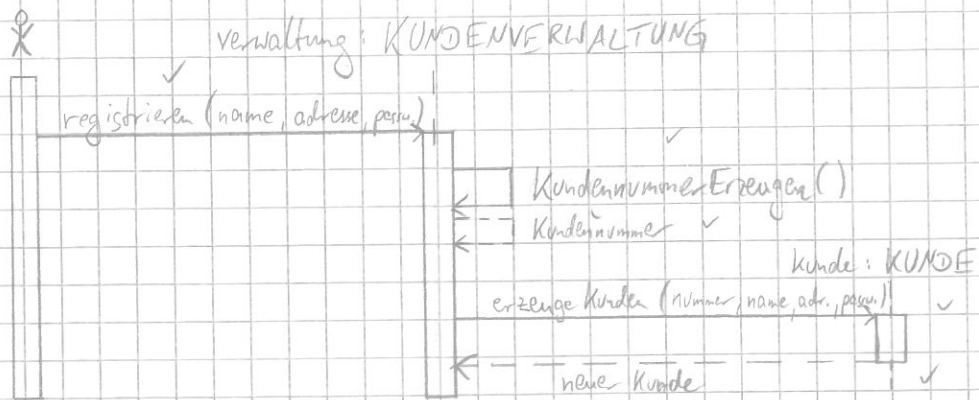 verwaltung: KUNDENVERWALTUNG
registrieren (name, adresse, passw.)
KundennummerErzeugen()
Kundennummer
kunde: KUNDE
erzeugeKunden (nummer, name, adr., passw.)
neuer Kunde